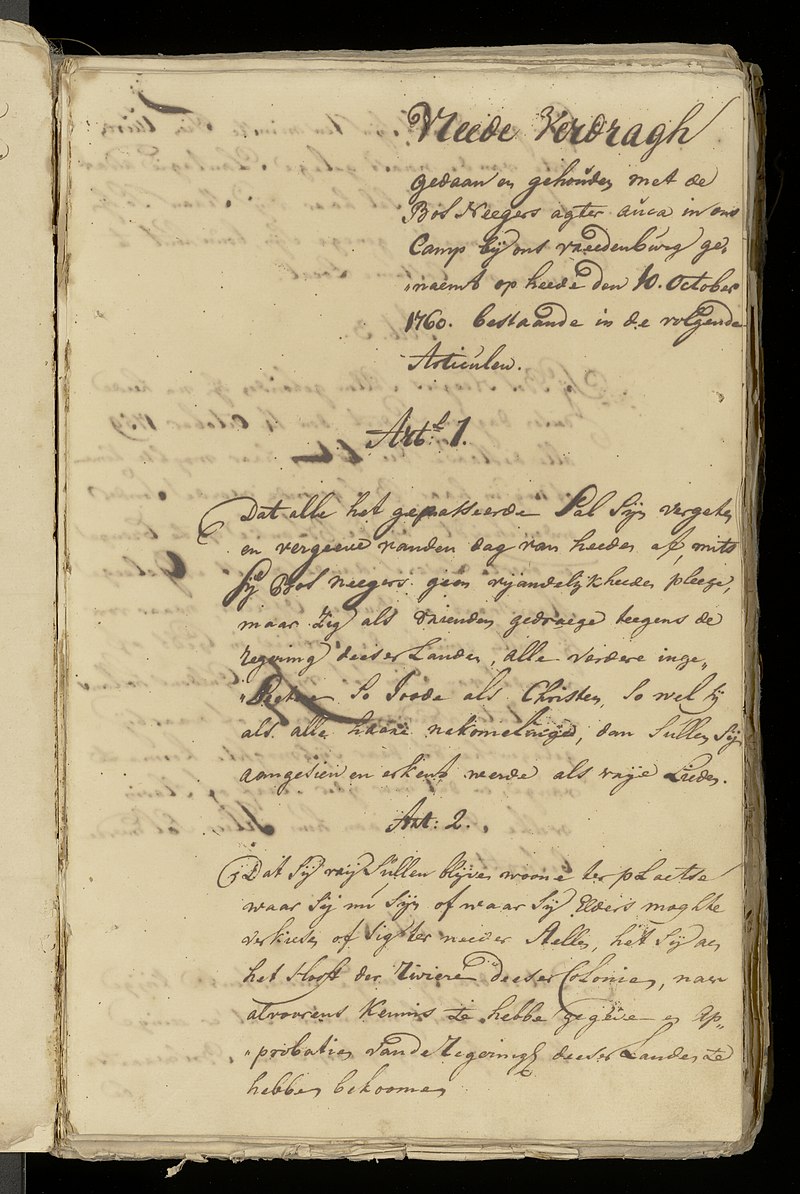 Vreede Verdragh
gedaan en gehouden met de
Bos Neegers agter auca in ons
Camp bij ons vreedenburg ge„
„naemt op heede den 10. October
1760. bestaande in de volgende
Articulen.
Art:l 1.
Dat alle het gepasseerde Sal Sijn vergeten
en vergeeve vanden dag van heeden af, mits
Sij Bos neegers geen vijandelijkheeden pleege,
maar Zig als vrienden gedraege teegens de
regering deeser Landen, alle verdere inge„
So Joode als Christen, So wel sij
als alle haare nakomelinge, dan Sullen Sij
aangesien en erkent werde als vrije Lieden.
Art: 2.
Dat Sij vrij Sullen blijven woone ter plaetse
waar Sij nu Sijn of waar Sij Elders moghte
verkiesen of Sig ter needer Stellen, het Sij aen
het Hooft der Riviere deeser Colonien, naer
alvoorens Kennis te hebbe gegeve en Ap„
„probatien vande Regeringh deeser Landen te
hebben bekoomen